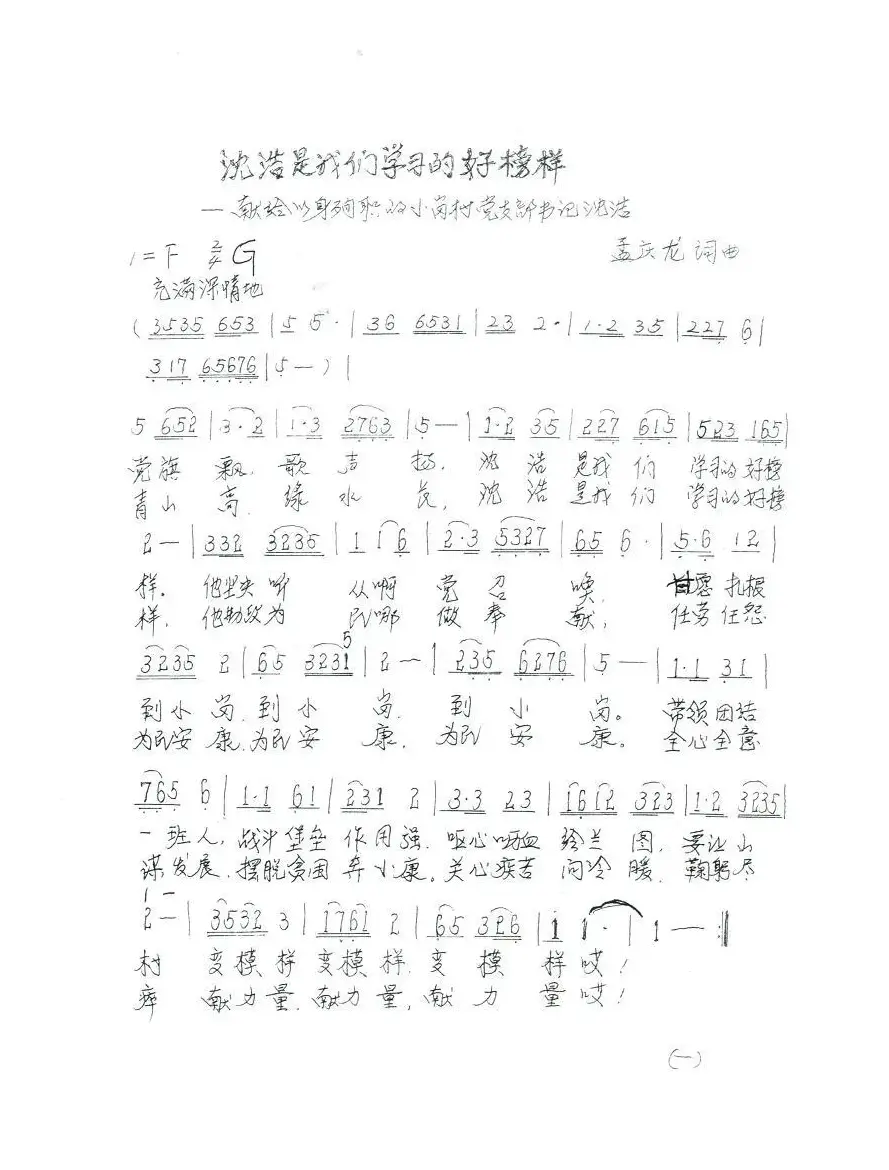 沈浩是我们学习的好榜样
—献给以身殉职的小岗村党支部书记沈浩
1=F 2/4 G 孟庆龙 词曲
充满深情地
(3535 653|5 5·|36 6531|23 2·|1·2 35|227 6|
317 65676|5—)|
5 652|3·2|1·3 2763|5—|1·2 35|227 615|523 165|
党旗 飘, 歌声 扬, 沈浩 是我们 学习的好榜
青山 高, 绿水 长, 沈浩 是我们 学习的好榜
2—|332 3235|1 1 6|2·3 5327|65 6·|5·6 12|
样。他坚决听 从啊 党召 唤, 甘愿扎根
样, 他勤政为 民哪 做奉 献, 任劳任怨
5
3235 2|65 3231|2—|235 6276|5—|1·1 31|
到小岗,到小 岗, 到小 岗。 带领团结
为民安康,为民安 康, 为民安 康。 全心全意
765 6|1·1 61|231 2|3·3 23|1612 323|1·2 3235|
一班人,战斗堡垒作用强, 呕心呖血 绘兰图, 要让小
谋发展,摆脱贫困奔小康。关心疾苦 问冷暖, 鞠躬尽
1 —
2—|3532 3|1761 2|65 326|1 1·|1—:‖
村 变模样 变模样, 变模 样哎!
瘁 献力量,献力量,献力 量哎!
(一)